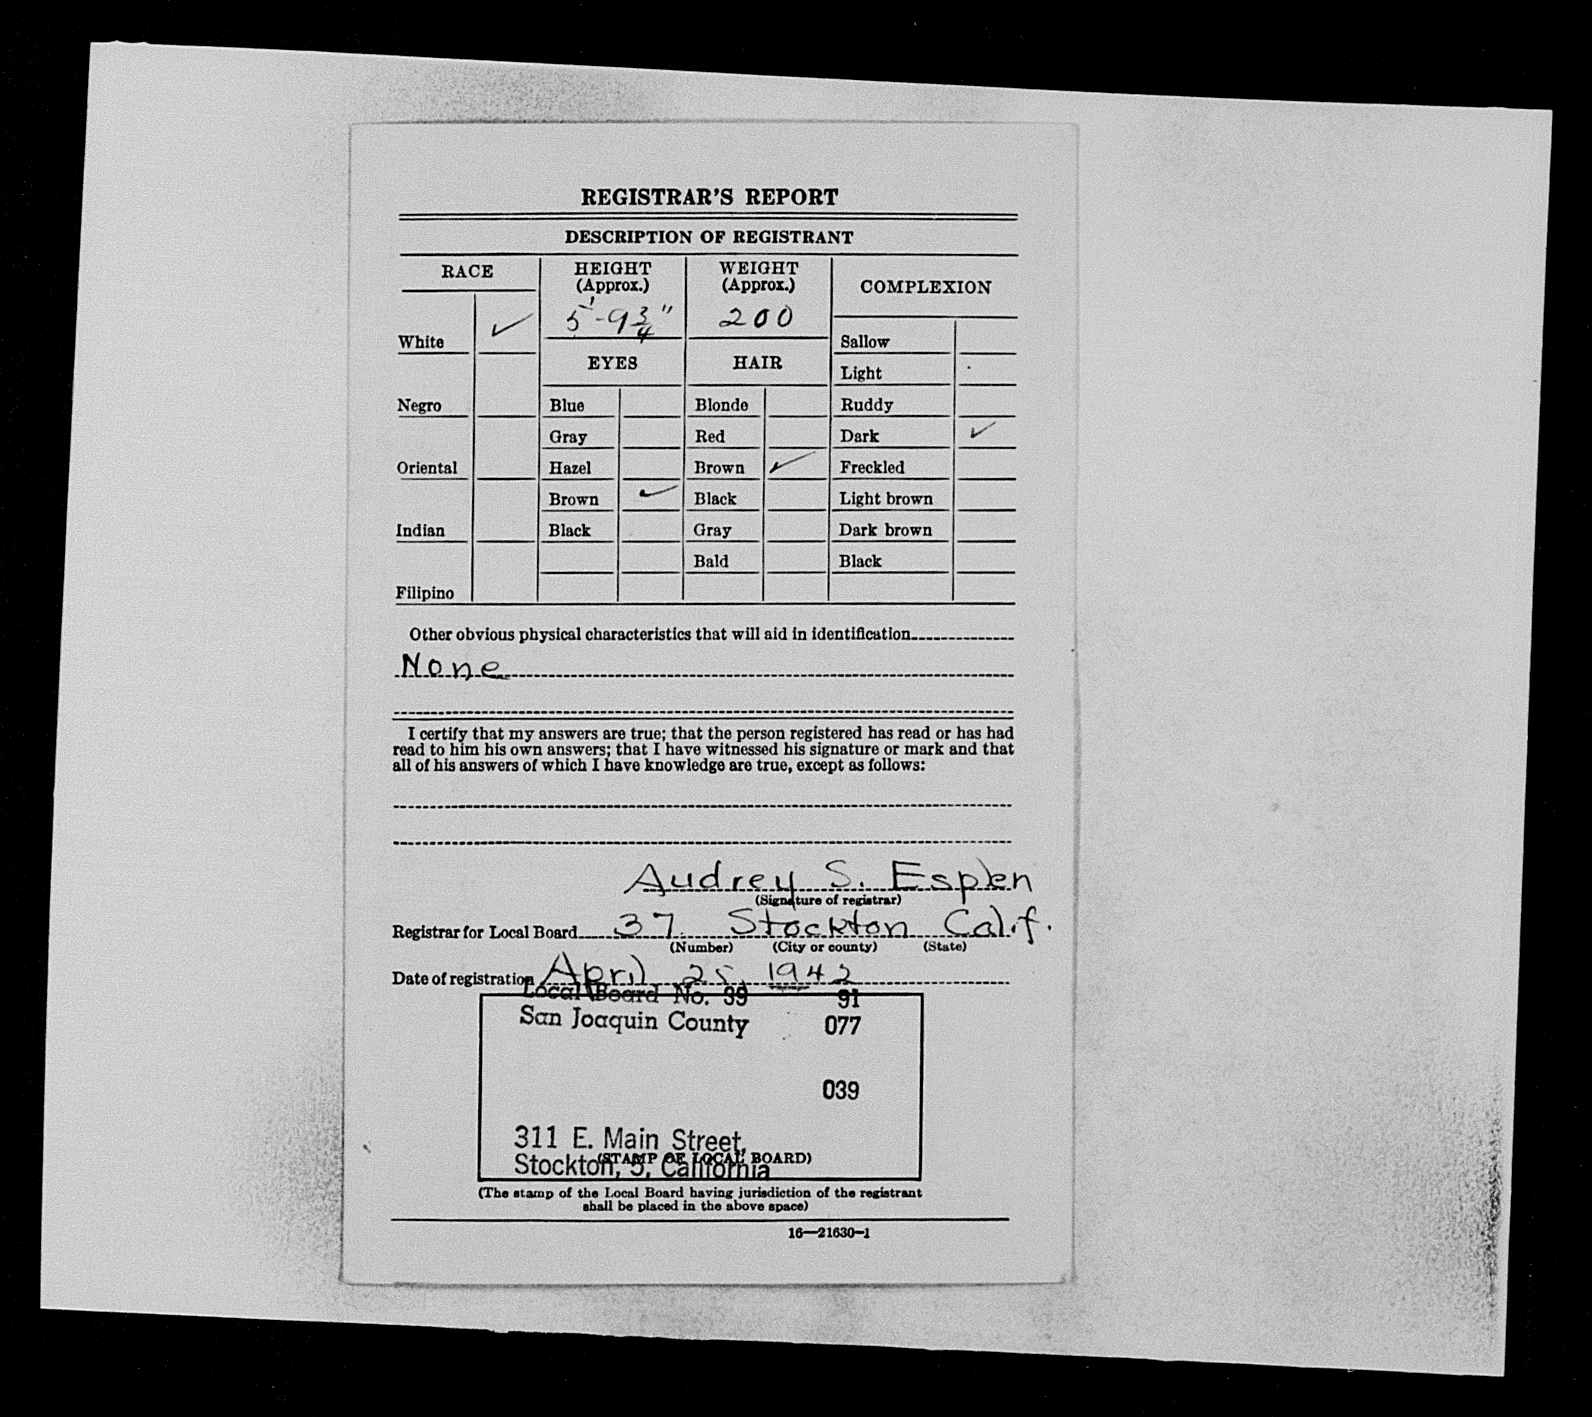 REGISTRAR'S REPORT
DESCRIPTION OF REGISTRANT
RACE
HEIGHT
(Approx.)
WEIGHT
(Approx.)
COMPLEXION
5'-9¾"
200
White ✓
Sallow
EYES
HAIR
Light
Negro
Blue
Blonde
Ruddy
Gray
Red
Dark ✓
Oriental
Hazel
Brown ✓
Freckled
Brown ✓
Black
Light brown
Indian
Black
Gray
Dark brown
Bald
Black
Filipino
Other obvious physical characteristics that will aid in identification
None
I certify that my answers are true; that the person registered has read or has had
read to him his own answers; that I have witnessed his signature or mark and that
all of his answers of which I have knowledge are true, except as follows:
Audrey S. Esplen
(Signature of registrar)
Registrar for Local Board 37 Stockton Calif.
(Number) (City or county) (State)
Date of registration April 25, 1942
Local Board No. 39 91
San Joaquin County 077
039
311 E. Main Street,
(STAMP OF LOCAL BOARD)
Stockton, 5, California
(The stamp of the Local Board having jurisdiction of the registrant
shall be placed in the above space)
16—21630-1